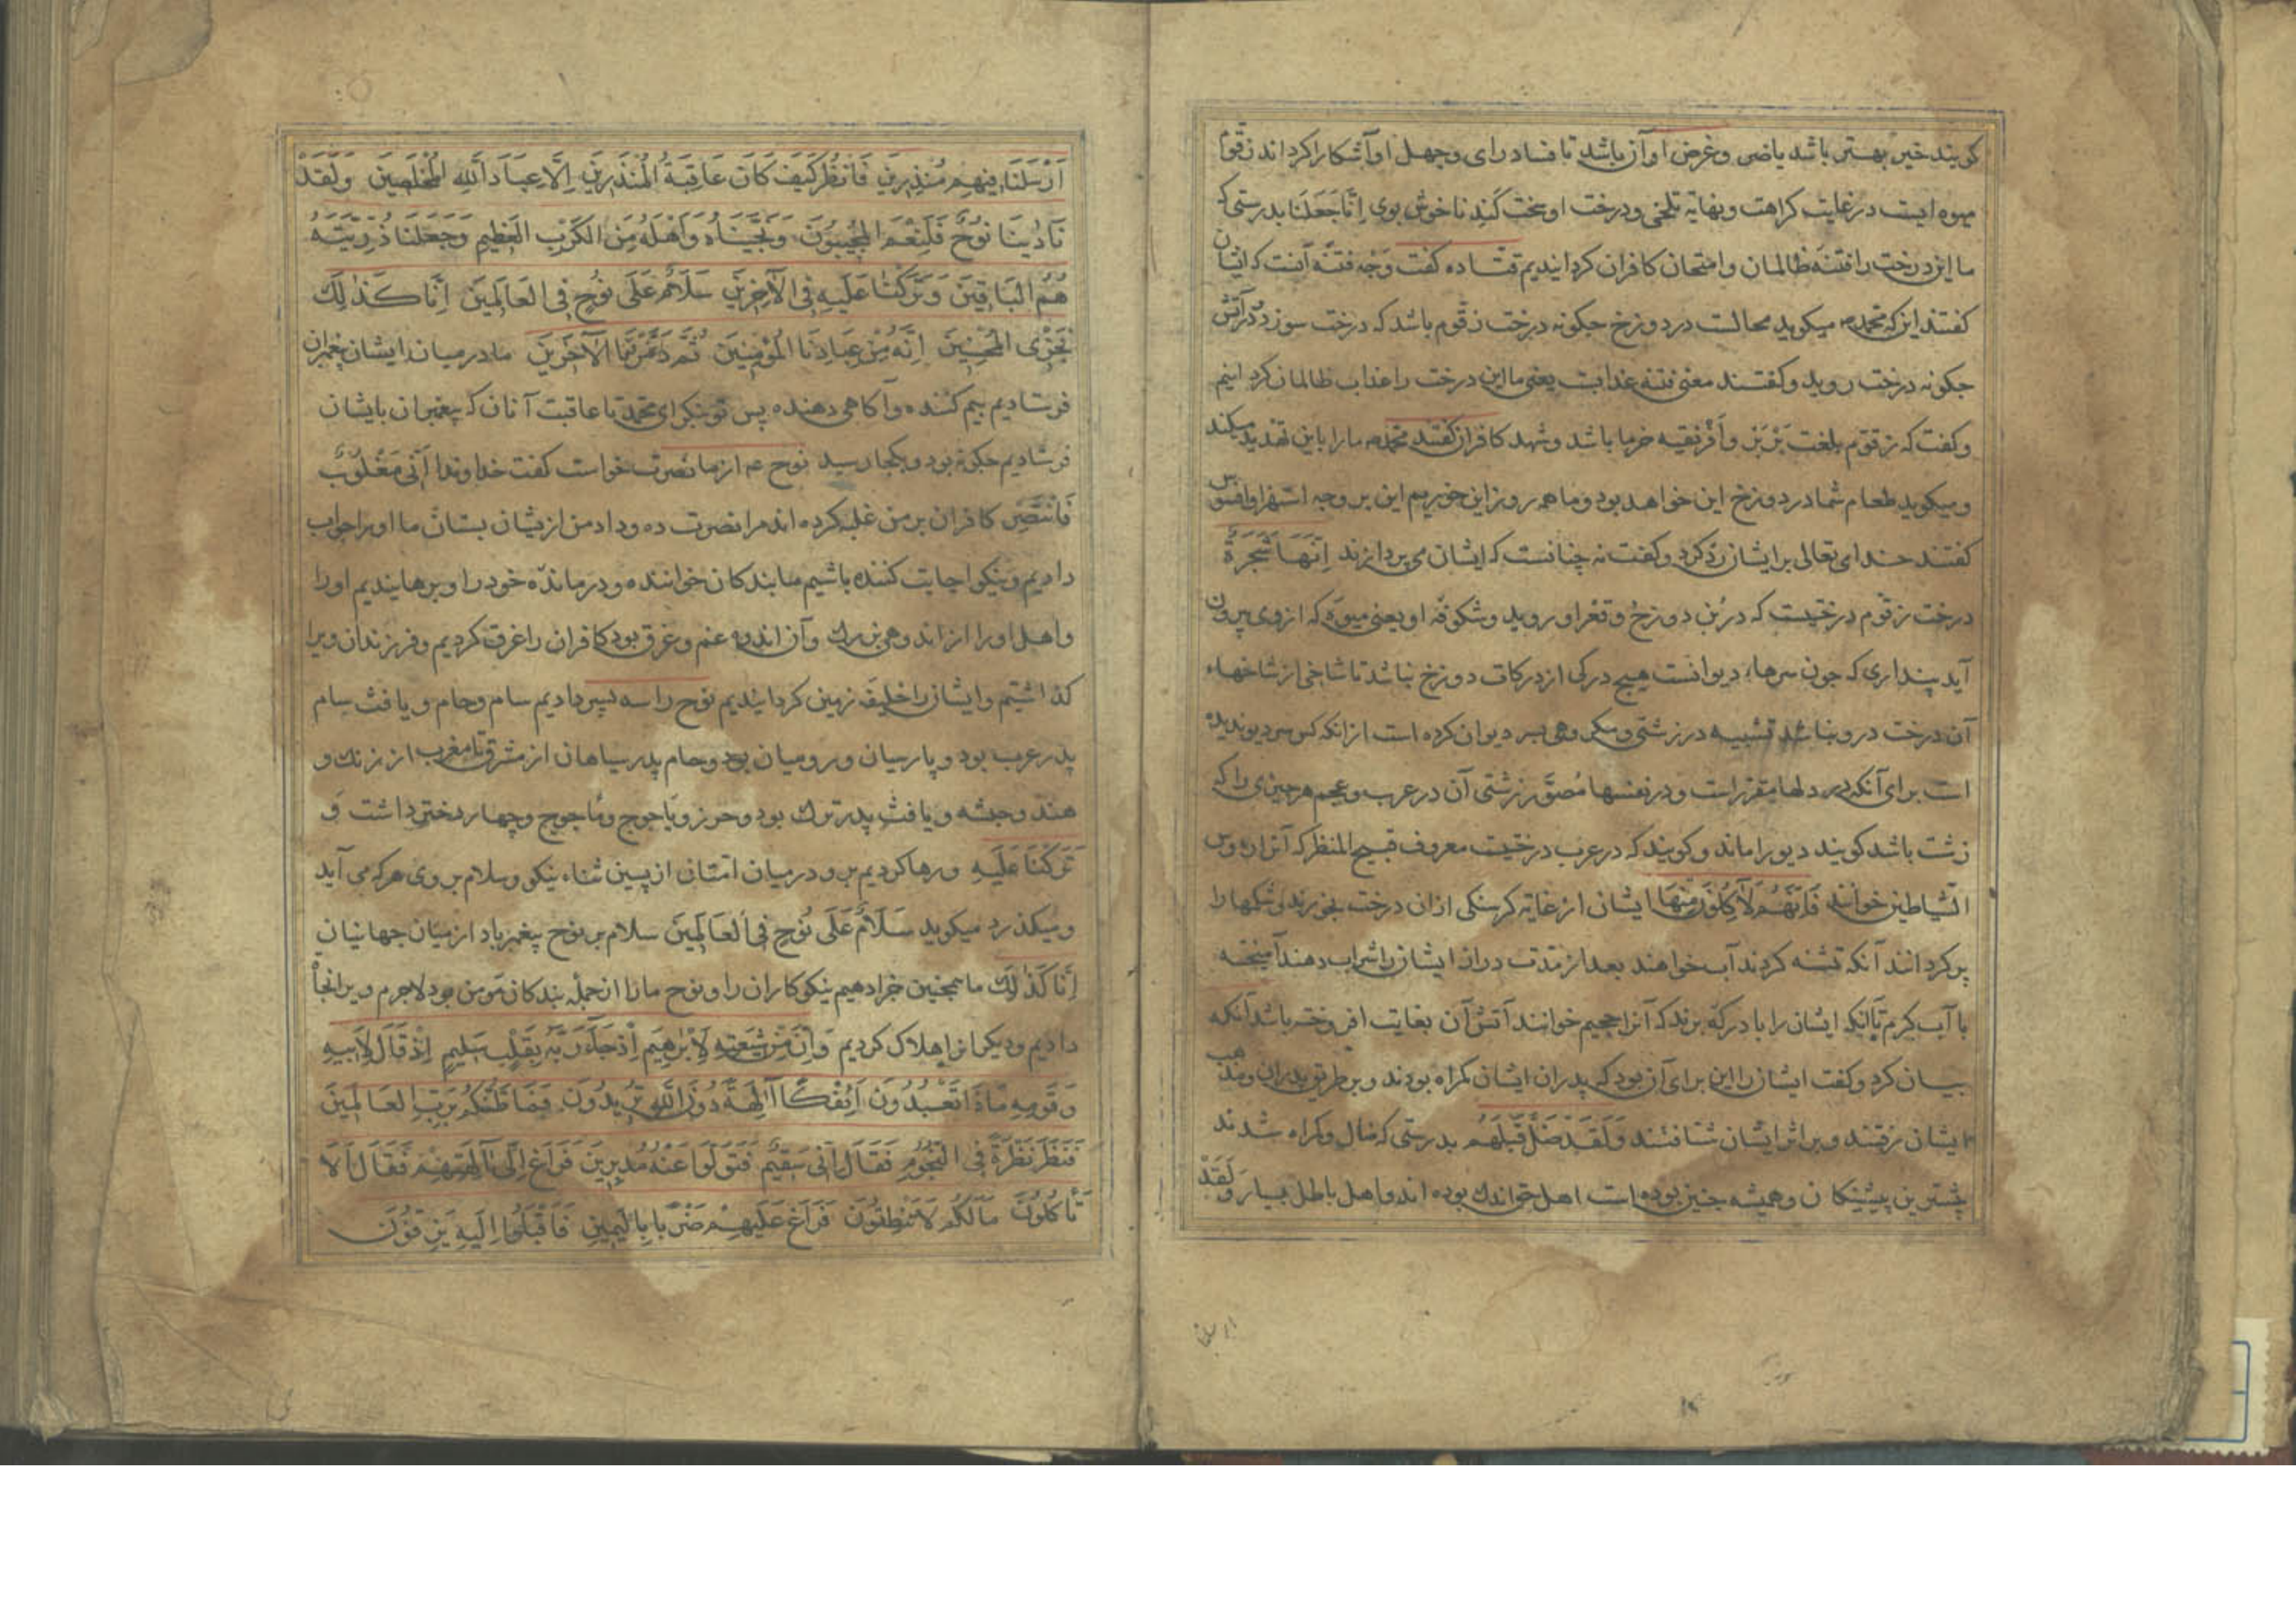 کویند خیر بهتر باشد یا ضر وغرض او آن باشد تا فساد رای وجهل او آشکارا کرداند زقوم
میوه ایست در غایت کراهت ونهایة تلخی ودرخت او سخت کند ناخوش بوی اِنَّا جَعَلْنَا بدرستی که
ما این درخت را فتنه ظالمان وامتحان کافران کردانیدیم قتاده کفت وجه فتنه آنست که ایشان
کفتند اینکه محمد میکوید محالست در دوزخ جکونه درخت زقوم باشد که درخت سوزد در آتش
جکونه درخت روید وکفتند معنی فتنه عذابست یعنی ما این درخت را عذاب ظالمان کردانیم
وکفت که زقوم بلغت بَرْبَر واَفْرِیقیه خرما باشد وشهد کافران کفتند محمد ما را باین تهدید میکند
ومیکوید طعام شما در دوزخ این خواهد بود وما همه روز این خوریم این بر وجه استهزا وافسوس
کفتند خدای تعالی بر ایشان رد کرد وکفت نه چنانست که ایشان می پردازند اِنَّهَا شَجَرَةٌ
درخت زقوم درختیست که در بُن دوزخ وقعر او روید وشکوفه او یعنی میوه که از وی بیرون
آید پنداری که جون سرهاء دیوانست هیچ درکی از درکات دوزخ نباشد تا شاخی از شاخهاء
آن درخت درو نباشد تشبیه در زشتی ومکروهی بسر دیوان کرده است از انکه کس سر دیو ندیده
است برای آنکه در دلها مقرر است ودر نفسها مُصَوَّر زشتی آن در عرب وعجم هر جیزی را که
زشت باشد کویند دیو را ماند وکویند که در عرب درختیست معروف قبیح المنظر که آنرا رؤس
الشیاطین خوانند فَاِنَّهُمْ لَآكِلُونَ مِنْهَا ایشان از غایة کرسنکی ازان درخت بخورند وشکمها را
پر کردانند آنکه تشنه کردند آب خواهند بعد از مدت دراز ایشان را شراب دهند آمیخته
با آب کرم تا آنکه ایشان را با درکة برند که آنرا جحیم خوانند آتش آن بغایت افروخته باشد آنکه
بیان کرد وکفت ایشان را این برای آن بود که پدران ایشان کمراه بودند وبر طریق پدران ومذهب
ایشان رفتند وبر اثر ایشان شتافتند وَلَقَدْ ضَلَّ قَبْلَهُم بدرستی که ضال وکمراه شدند
پیشترین پیشینکان وهمیشه جنین بوده است اهل حق اندک بوده اند واهل باطل بسیار وَلَقَدْ
اَرْسَلْنَا فِيهِم مُنْذِرِينَ فَانْظُرْ كَيْفَ كَانَ عَاقِبَةُ الْمُنْذَرِينَ اِلَّا عِبَادَ اللهِ الْمُخْلَصِينَ وَلَقَدْ
نَادَيْنَا نُوحٌ فَلَنِعْمَ الْمُجِيبُونَ وَنَجَّيْنَاهُ وَاَهْلَهُ مِنَ الْكَرْبِ الْعَظِيمِ وَجَعَلْنَا ذُرِّيَّتَهُ
هُمُ الْبَاقِينَ وَتَرَكْنَا عَلَيْهِ فِي الْآخِرِينَ سَلَامٌ عَلَى نُوحٍ فِي الْعَالَمِينَ اِنَّا كَذٰلِكَ
نَجْزِي الْمُحْسِنِينَ اِنَّهُ مِنْ عِبَادِنَا الْمُؤْمِنِينَ ثُمَّ دَمَّرْنَا الْآخَرِينَ ما در میان ایشان پیغمبران
فرستادیم بیم کننده وآکاهی دهنده پس تو بنکر ای محمد تا عاقبت آنان که پیغمبران بایشان
فرستادیم جکونه بود وبکجا رسید نوح عم از ما نصرت خواست کفت خداوندا اَنِّي مَغْلُوبٌ
فَانْتَصِرْ کافران بر من غلبه کرده اند مرا نصرت ده وداد من از یشان بستان ما او را جواب
دادیم ونیکو اجابت کننده باشیم ما بندکان خواننده ودرمانده خود را وبرهانیدیم او را
واهل او را از اندوهی بزرک وآن اندوه غم وغرق بود کافران را غرق کردیم وفرزندان ویرا
کذاشتیم وایشان را خلیفه زمین کردانیدیم نوح را سه پسر دادیم سام وحام ویافث سام
پدر عرب بود وپارسیان ورومیان بود وحام پدر سیاهان از مشرق تا مغرب از زنک و
هند وحبشه ویافث پدر ترک بود وخرز ویاجوج وماجوج وچهار دختر داشت وَ
تَرَكْنَا عَلَيْهِ ورها کردیم برو در میان امتان از پسین ثناء نیکو وسلام بر وی هرکه می آید
ومیکذرد میکوید سَلَامٌ عَلَى نُوحٍ فِي الْعَالَمِينَ سلام بر نوح پیغمبر باد از میان جهانیان
اِنَّا كَذٰلِكَ ما همجنین جزا دهیم نیکوکاران را ونوح ما را از جمله بندکان مومن بود لاجرم ویرا نجاة
دادیم ودیکرانرا هلاک کردیم وَاِنَّ مِنْ شِيعَتِهِ لَاِبْرٰهِيمَ اِذْ جَاءَ رَبَّهُ بِقَلْبٍ سَلِيمٍ اِذْ قَالَ لِاَبِيهِ
وَقَوْمِهِ مَاذَا تَعْبُدُونَ اَئِفْكًا آلِهَةً دُونَ اللهِ تُرِيدُونَ فَمَا ظَنُّكُمْ بِرَبِّ الْعَالَمِينَ
فَنَظَرَ نَظْرَةً فِي النُّجُومِ فَقَالَ اِنِّي سَقِيمٌ فَتَوَلَّوْا عَنْهُ مُدْبِرِينَ فَرَاغَ اِلَى آلِهَتِهِمْ فَقَالَ اَلَا
تَأْكُلُونَ مَا لَكُمْ لَا تَنْطِقُونَ فَرَاغَ عَلَيْهِمْ ضَرْبًا بِالْيَمِينِ فَاَقْبَلُوا اِلَيْهِ يَزِفُّونَ